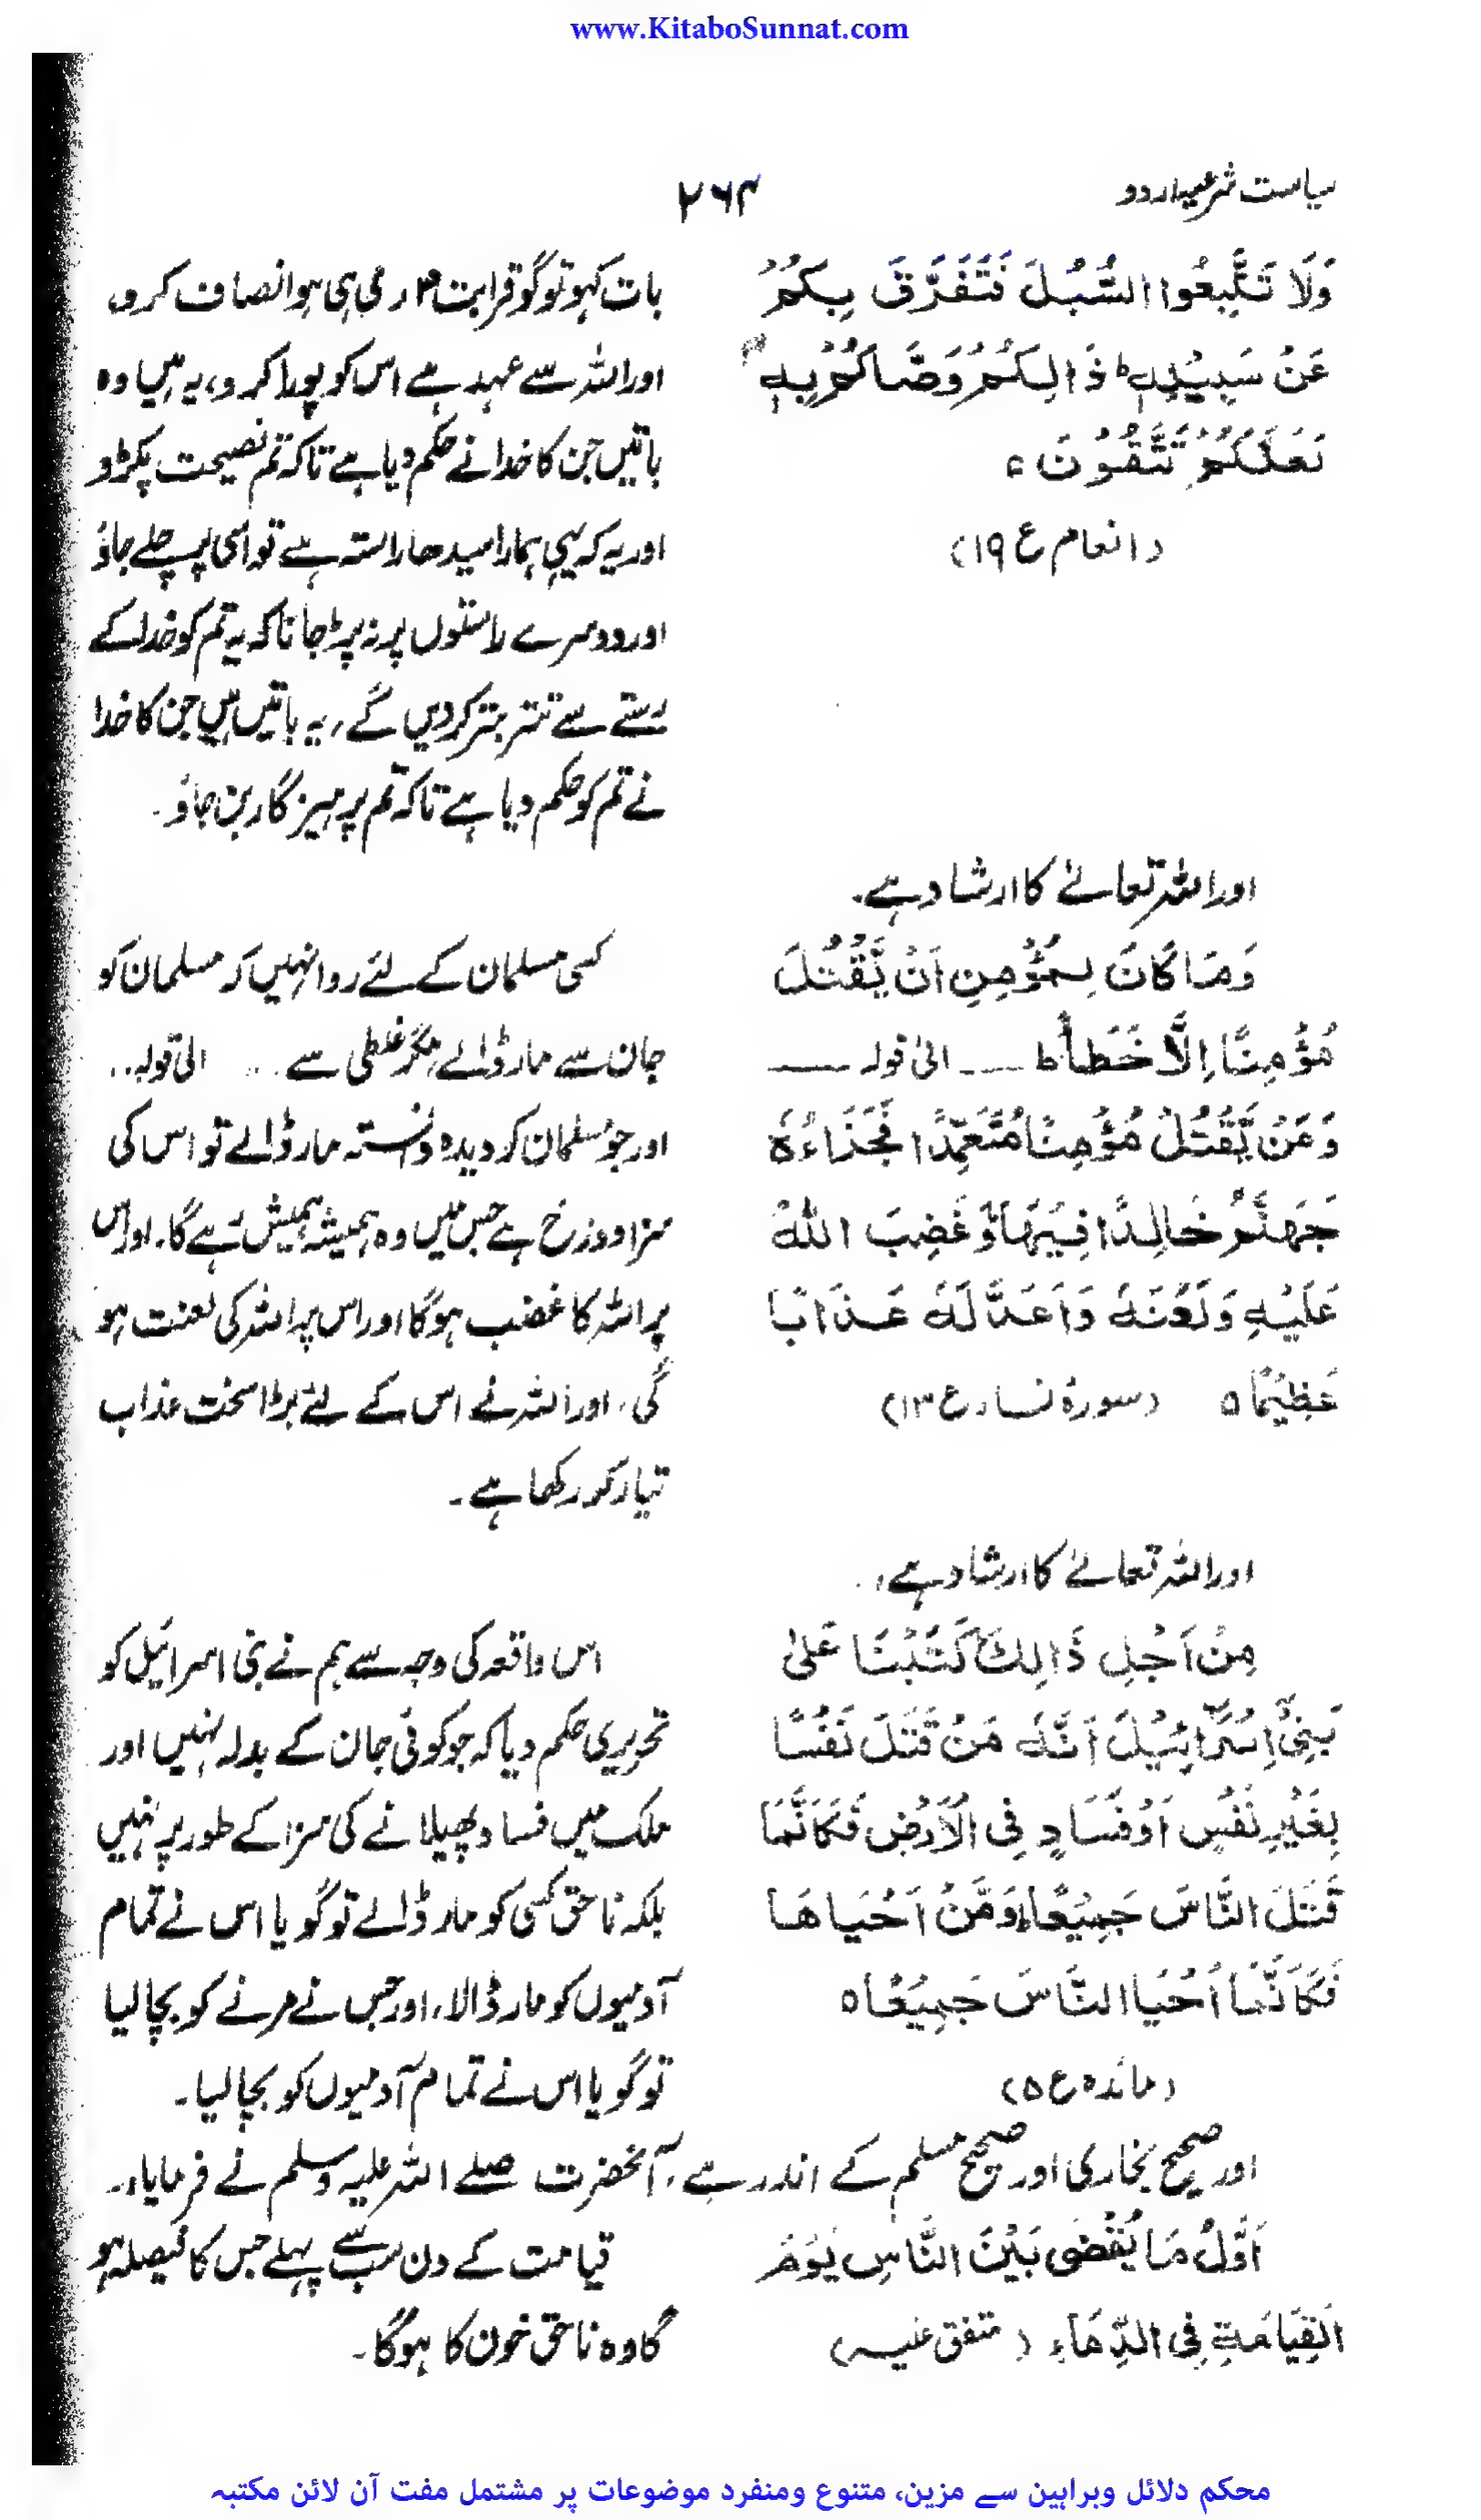 www.KitaboSunnat.com
سیاست شرعیہ اردو
۲۶۴
وَلَا تَتَّبِعُوا السُّبُلَ فَتَفَرَّقَ بِكُمْ
عَنْ سَبِيْلِهٖ ط ذَالِكُمْ وَصَّاكُمْ بِهٖ
لَعَلَّكُمْ تَتَّقُوْنَ ء
(انعام ع ۱۹)
بات کہو تو گو قرابت دار ہی کی ہو انصاف کرو،
اور اللہ سے عہد ہے اس کو پورا کرو، یہ ہیں وہ
باتیں جن کا خدا نے حکم دیا ہے تاکہ تم نصیحت پکڑو
اور یہ کہ یہی ہمارا سیدھا راستہ ہے تو اسی پر چلے جاؤ
اور دوسرے راستوں پر نہ پڑ جانا کہ یہ تم کو خدا کے
رستے سے تتر بتر کر دیں گے، یہ باتیں ہیں جن کا خدا
نے تم کو حکم دیا ہے تاکہ تم پرہیزگار بن جاؤ۔
اور اللہ تعالےٰ کا ارشاد ہے۔
وَمَا كَانَ لِمُؤْمِنٍ اَنْ يَّقْتُلَ
مُؤْمِنًا اِلَّا خَطَأً ط ــــ الیٰ قولہ ــــ
وَمَنْ يَّقْتُلْ مُؤْمِنًا مُتَعَمِّدًا فَجَزَاءُهٗ
جَهَنَّمُ خَالِدًا فِيْهَا وَغَضِبَ اللّٰهُ
عَلَيْهِ وَلَعَنَهٗ وَاَعَدَّ لَهٗ عَذَابًا
عَظِيْمًا ه (سورۂ نساء ع ۱۳)
کسی مسلمان کے لئے روا نہیں کہ مسلمان کو
جان سے مار ڈالے مگر غلطی سے ... الیٰ قولہ ..
اور جو مسلمان کو دیدہ و دانستہ مار ڈالے تو اس کی
سزا دوزخ ہے جس میں وہ ہمیشہ ہمیش رہے گا۔ اور اس
پر اللہ کا غضب ہوگا اور اس پر اللہ کی لعنت ہو
گی، اور اللہ نے اس کے لئے بڑا سخت عذاب
تیار کر رکھا ہے۔
اور اللہ تعالےٰ کا ارشاد ہے،
مِنْ اَجْلِ ذَالِكَ كَتَبْنَا عَلىٰ
بَنِىْ اِسْرَآئِيْلَ اَنَّهٗ مَنْ قَتَلَ نَفْسًا
بِغَيْرِ نَفْسٍ اَوْ فَسَادٍ فِى الْاَرْضِ فَكَاَنَّمَا
قَتَلَ النَّاسَ جَمِيْعًا وَمَنْ اَحْيَاهَا
فَكَاَنَّمَا اَحْيَا النَّاسَ جَمِيْعًا ه
(مائدہ ع ۵)
اس واقعہ کی وجہ سے ہم نے بنی اسرائیل کو
تحریری حکم دیا کہ جو کوئی جان کے بدلہ نہیں اور
ملک میں فساد پھیلانے کی سزا کے طور پر نہیں
بلکہ ناحق کسی کو مار ڈالے تو گویا اس نے تمام
آدمیوں کو مار ڈالا، اور جس نے مرنے کو بچا لیا
تو گویا اس نے تمام آدمیوں کو بچا لیا۔
اور صحیح بخاری اور صحیح مسلم کے اندر ہے، آنحضرت صلے اللہ علیہ وسلم نے فرمایا:۔
اَوَّلُ مَا يُقْضٰى بَيْنَ النَّاسِ يَوْمَ
الْقِيَامَةِ فِى الدِّمَاءِ (متفق علیہ)
قیامت کے دن سب سے پہلے جس کا فیصلہ ہو
گا وہ ناحق خون کا ہوگا۔
محکم دلائل وبراہین سے مزین، متنوع ومنفرد موضوعات پر مشتمل مفت آن لائن مکتبہ